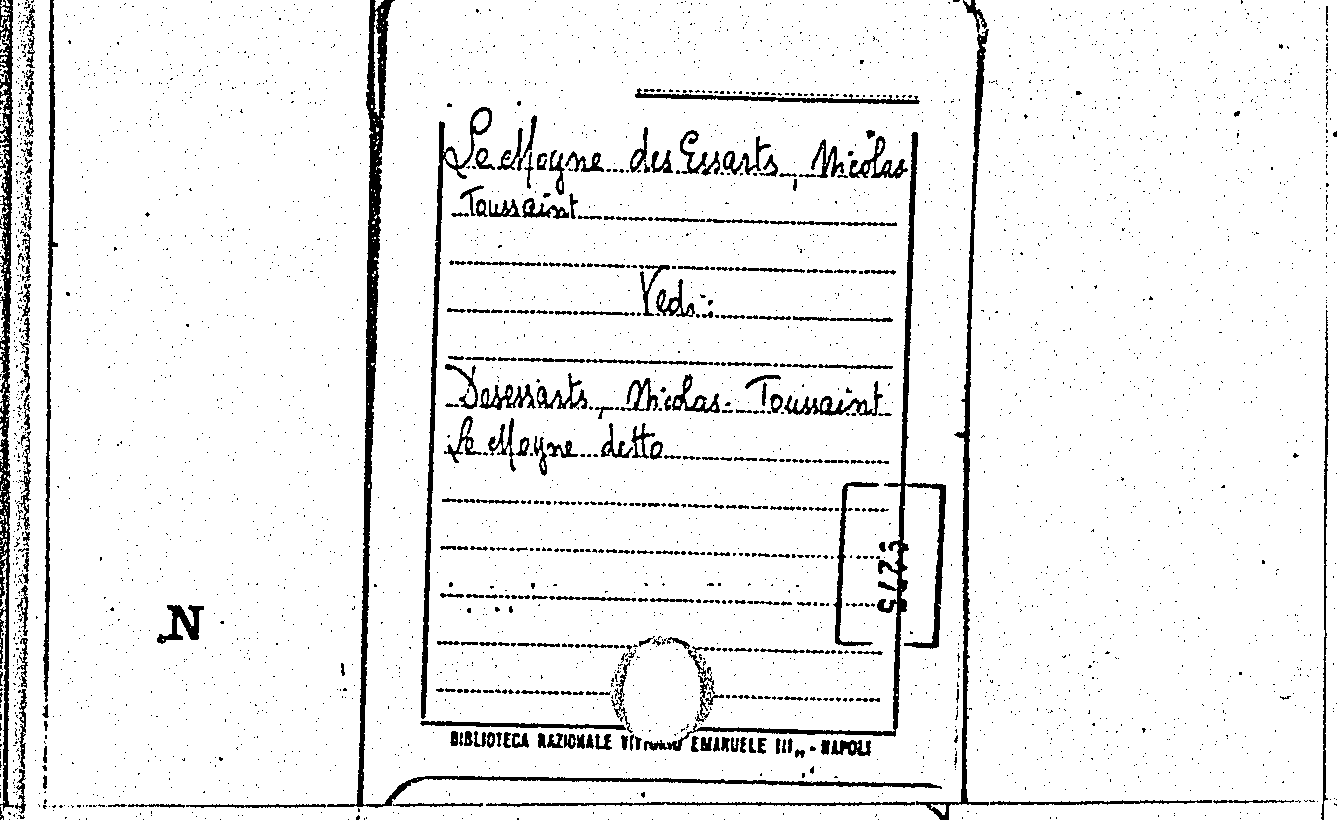 Le Moyne des Essarts, Nicolas
Toussaint
Vedi:
Desessarts, Nicolas-Toussaint
Le Moyne detto
N
BIBLIOTECA NAZIONALE VITTORIO EMANUELE III„ - NAPOLI